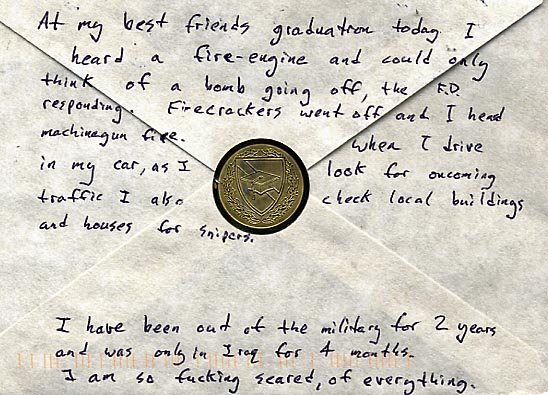 At my best friends graduation today I
heard a fire-engine and could only
think of a bomb going off, the F.D.
responding. Firecrackers went off and I heard
machinegun fire. when I drive
in my car, as I look for oncoming
traffic I also check local buildings
and houses for snipers.
I have been out of the military for 2 years
and was only in Iraq for 4 months.
I am so fucking scared, of everything.